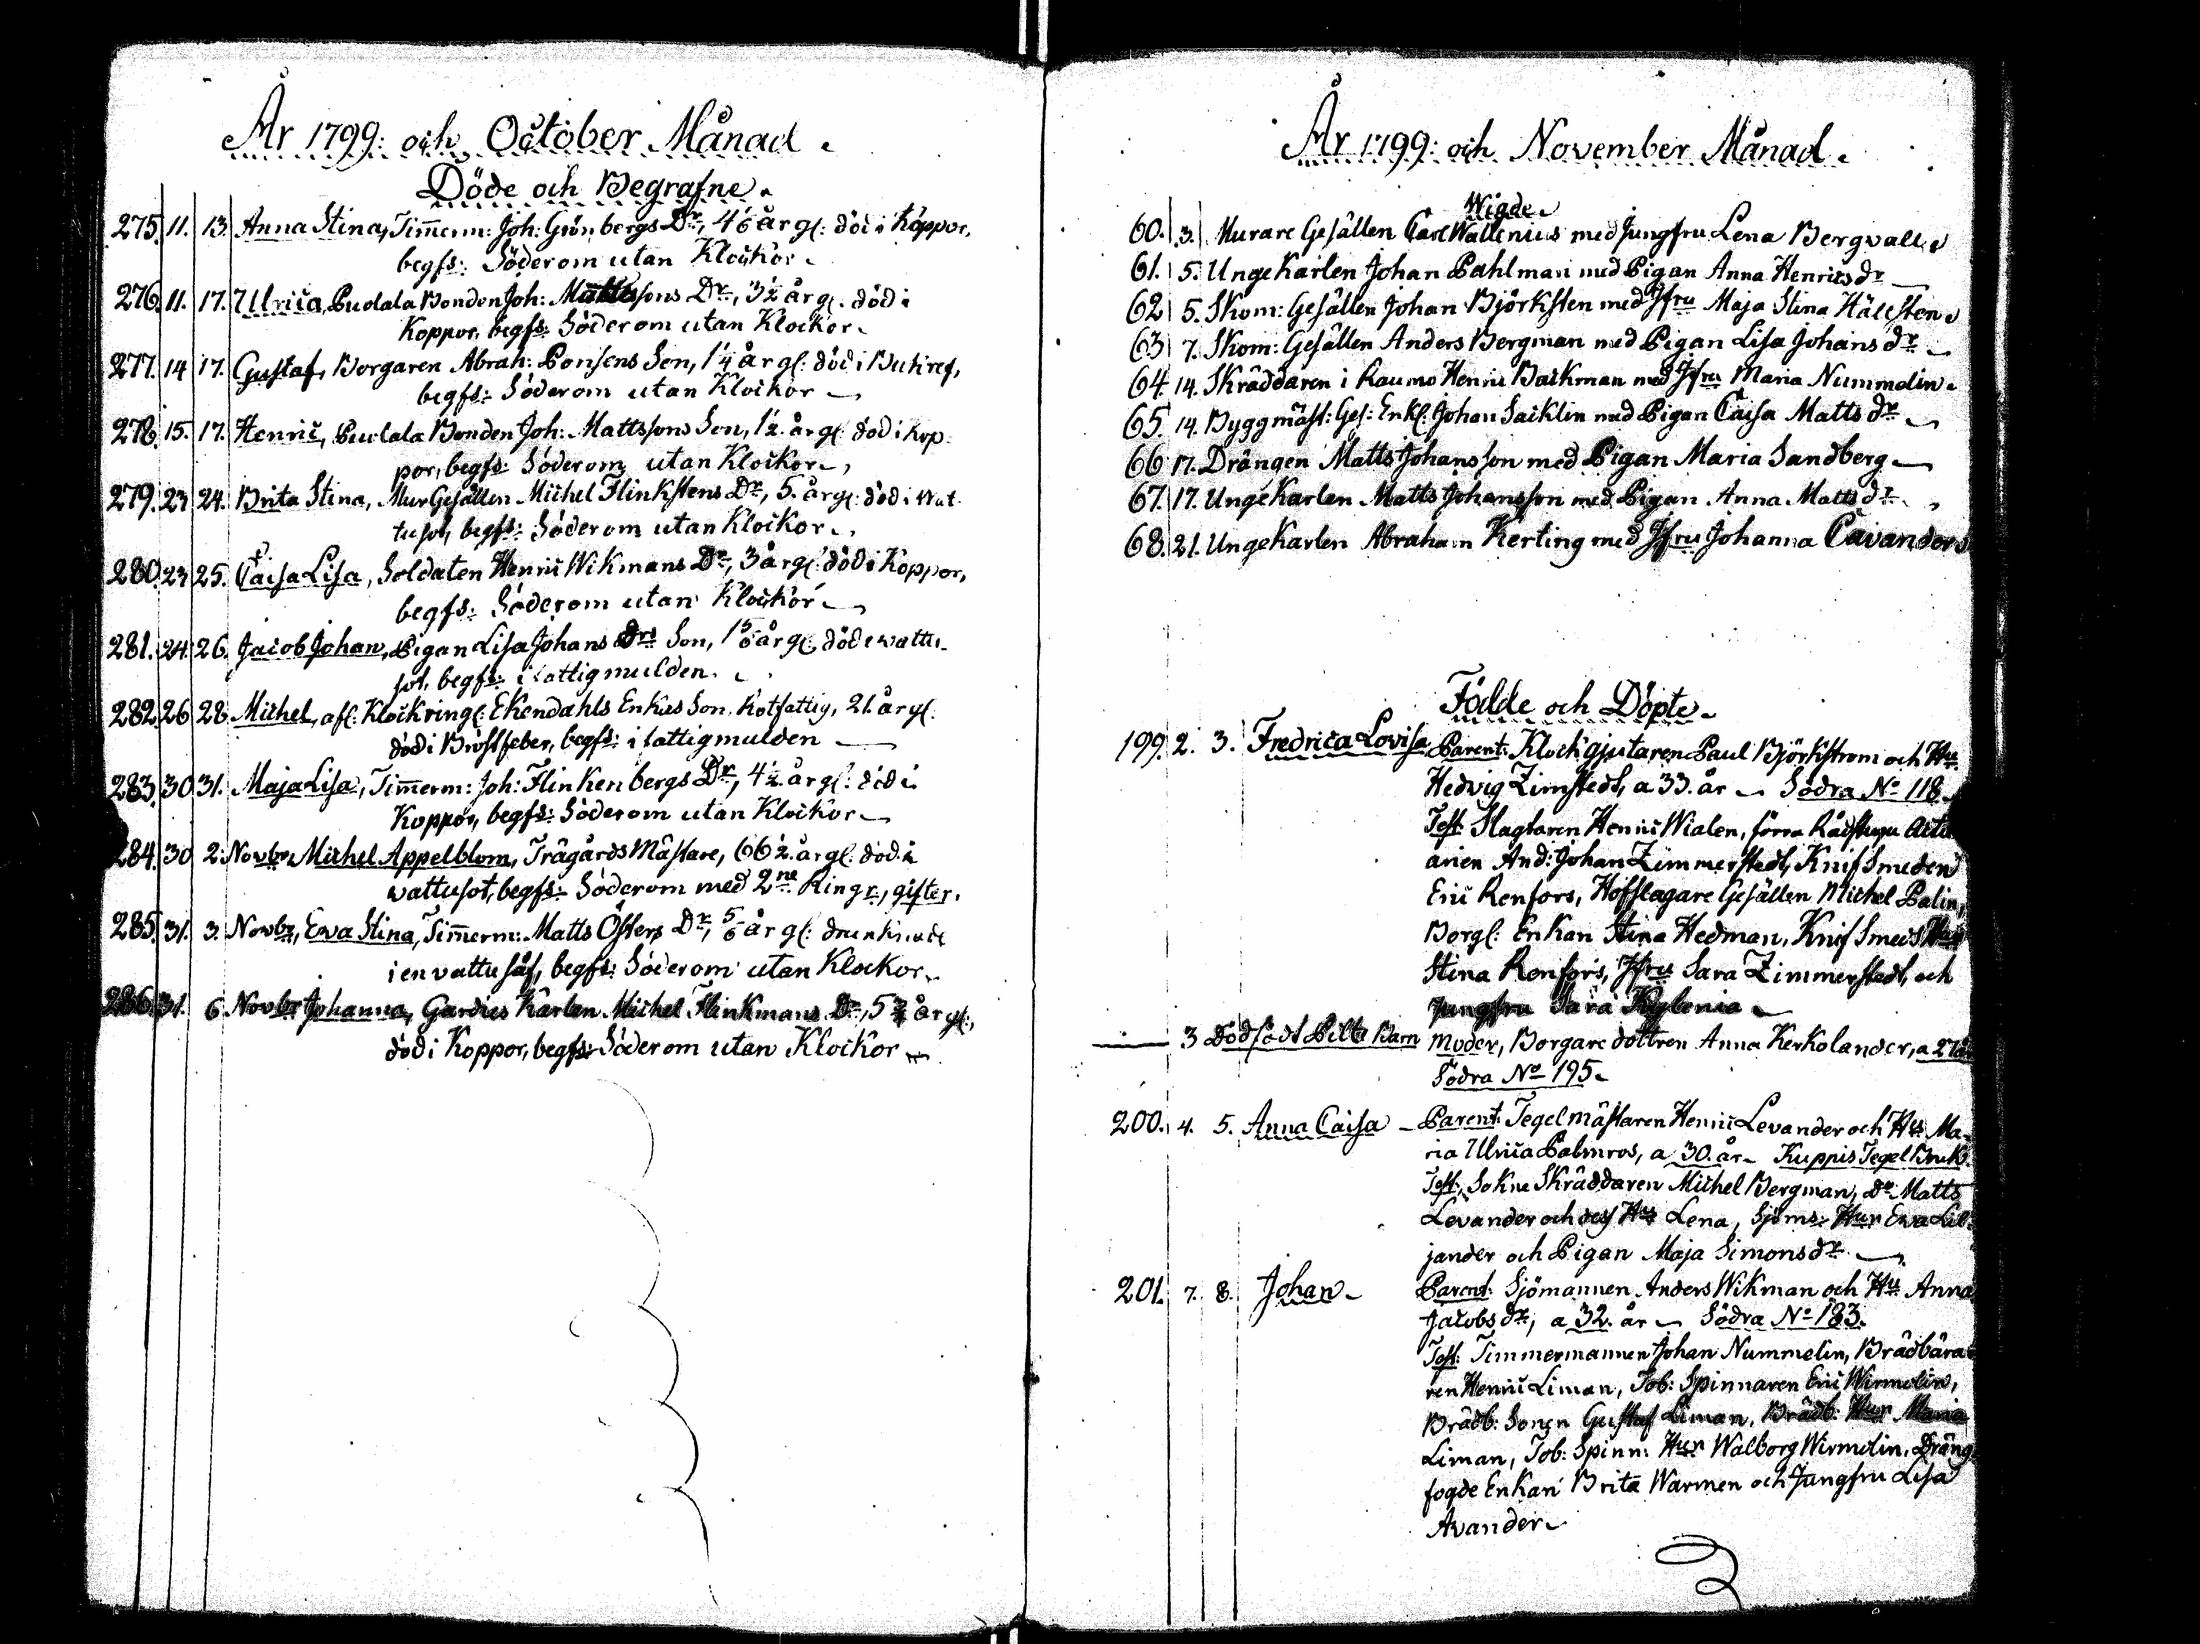 År 1799: och October Månad.
Döde och Begrafne.
275. 11. 13. Anna Stina, Timmerm: Joh: Grönbergs Dr, år gl: död i Koppor,
begfs: Söderom utan Klockor.
276. 11. 17. Ulrica, Pudala Bonden Joh: Mattssons Dr, 3½ år gl. död i
Koppor, begfs: Söderom utan Klockor.
277. 14 17. Gustaf, Borgaren Abrah: Ponsens Son, 1¼ år gl: död i
begfs: Söderom utan Klockor
278. 15. 17. Henric, Pudala Bonden Joh: Mattssons Son, 1½ år gl: död i Kop-
por, begfs: Söderom utan Klockor.
279. 23 24. Brita Stina, Mur Gesällen Michel Flinkstens Dr, 5. år gl: död i Wat-
tusot, begfs: Söderom utan Klockor.
280. 23 25. Caisa Lisa, Soldaten Henric Wikmans Dr, 3 år gl: död i Koppor,
begfs: Söderom utan Klockor.
281. 24. 26. Jacob Johan, Pigan Lisa Johans Drs Son, 1 5/6 år gl: död i wattu-
sot, begfs: i fattigmulden.
282. 26 28. Michel, afl: Klockringl: Ekendahls Enkas Son, Rotfattig, 21. år gl:
död i Bröstfeber, begfs: i fattigmulden
283. 30 31. Maja Lisa, Timmerm: Joh: Flinkenbergs Dr, 4½ år gl: död i
Koppor, begfs: Söderom utan Klockor
284. 30 2. Novbr, Michel Appelblom, Trägårds Mästare, 66½ år gl: död i
wattusot, begfs: Söderom med 2ne Ringr, gifter.
285. 31. 3. Novbr, Ewa Stina, Timmerm: Matts Östers Dr, 5/6 år gl: drunknade
i en vattu såf, begfs: Söderom utan Klockor.
286. 31. 6. Novbr Johanna, Gardies Karlen Michel Flinkmans Dr, 5¾ år gl:,
död i Koppor, begfs: Söderom utan Klockor
År 1799: och November Månad.
Wigde
60. 3. Murare Gesällen Carl Wallenius med Jungfru Lena Bergvall
61. 5. Unge Karlen Johan Pahlman med Pigan Anna Henrics dr
62 5. Skom: Gesällen Johan Björksten med Jfru Maja Stina Hällsten
63 7. Skom: Gesällen Anders Bergman med Pigan Lisa Johans dr
64 14. Skräddaren i Raumo Henric Backman med Jfru Maria Nummelin.
65. 14. Byggmäst: Ges: Enkl: Johan Sacklin med Pigan Caisa Matts dr
66 17. Drängen Matts Johansson med Pigan Maria Sandberg
67. 17. Unge Karlen Matts Johansson med Pigan Anna Matts dr
68. 21. Unge Karlen Abraham Kerting med Jfru Johanna Cavander
Födde och Döpte.
199. 2. 3. Fredrica Lovisa Parent: Klockgjutaren Paul Björkstrom och Hu
Hedvig Zimstedt, a 33. år Södra No 118.
Test: Slagtaren Henric Wialen, förra
arien And: Johan Zimmerstedt, Knif Smeden
Eric Renfors, Hofslagare Gesällen Michel Palin,
Borgl: Enkan Stina Hedman, Knif Smeds Hun
Stina Renfors, Jfru Sara Zimmerstedt, och
Jungfru Sara Kyglenia
3 Dödfödt Pilte Barn Moder, Borgare dottren Anna Kerkolander, a 27 år
Södra No 195.
200. 4. 5. Anna Caisa - Parent: Tegelmästaren Henric Levander och Hu Ma-
ria Ulrica Palmros, a 30. år Kuppis Tegel Bruk.
Test: Sokne Skräddaren Michel Bergman, Do Matts
Levander och dess Hu Lena, Sjöms: Hun Ewa Lil-
jander och Pigan Maja Simons dr
201. 7. 8. Johan - Parent: Sjömannen Anders Wikman och Hu Anna
Jacobs dr, a 32. år Södra No 183.
Test: Timmermannen Johan Nummelin, Brädbära-
ren Henric Liman, Tob: Spinnaren Eric Wirmelin,
Brädb: Sonen Gustaf Liman, Brädb: Hun Maria
Liman, Tob: Spinn: Hun Walborg Wirmelin, Dräng-
fogde Enkan Brita Warmen och Jungfru Lisa
Avander